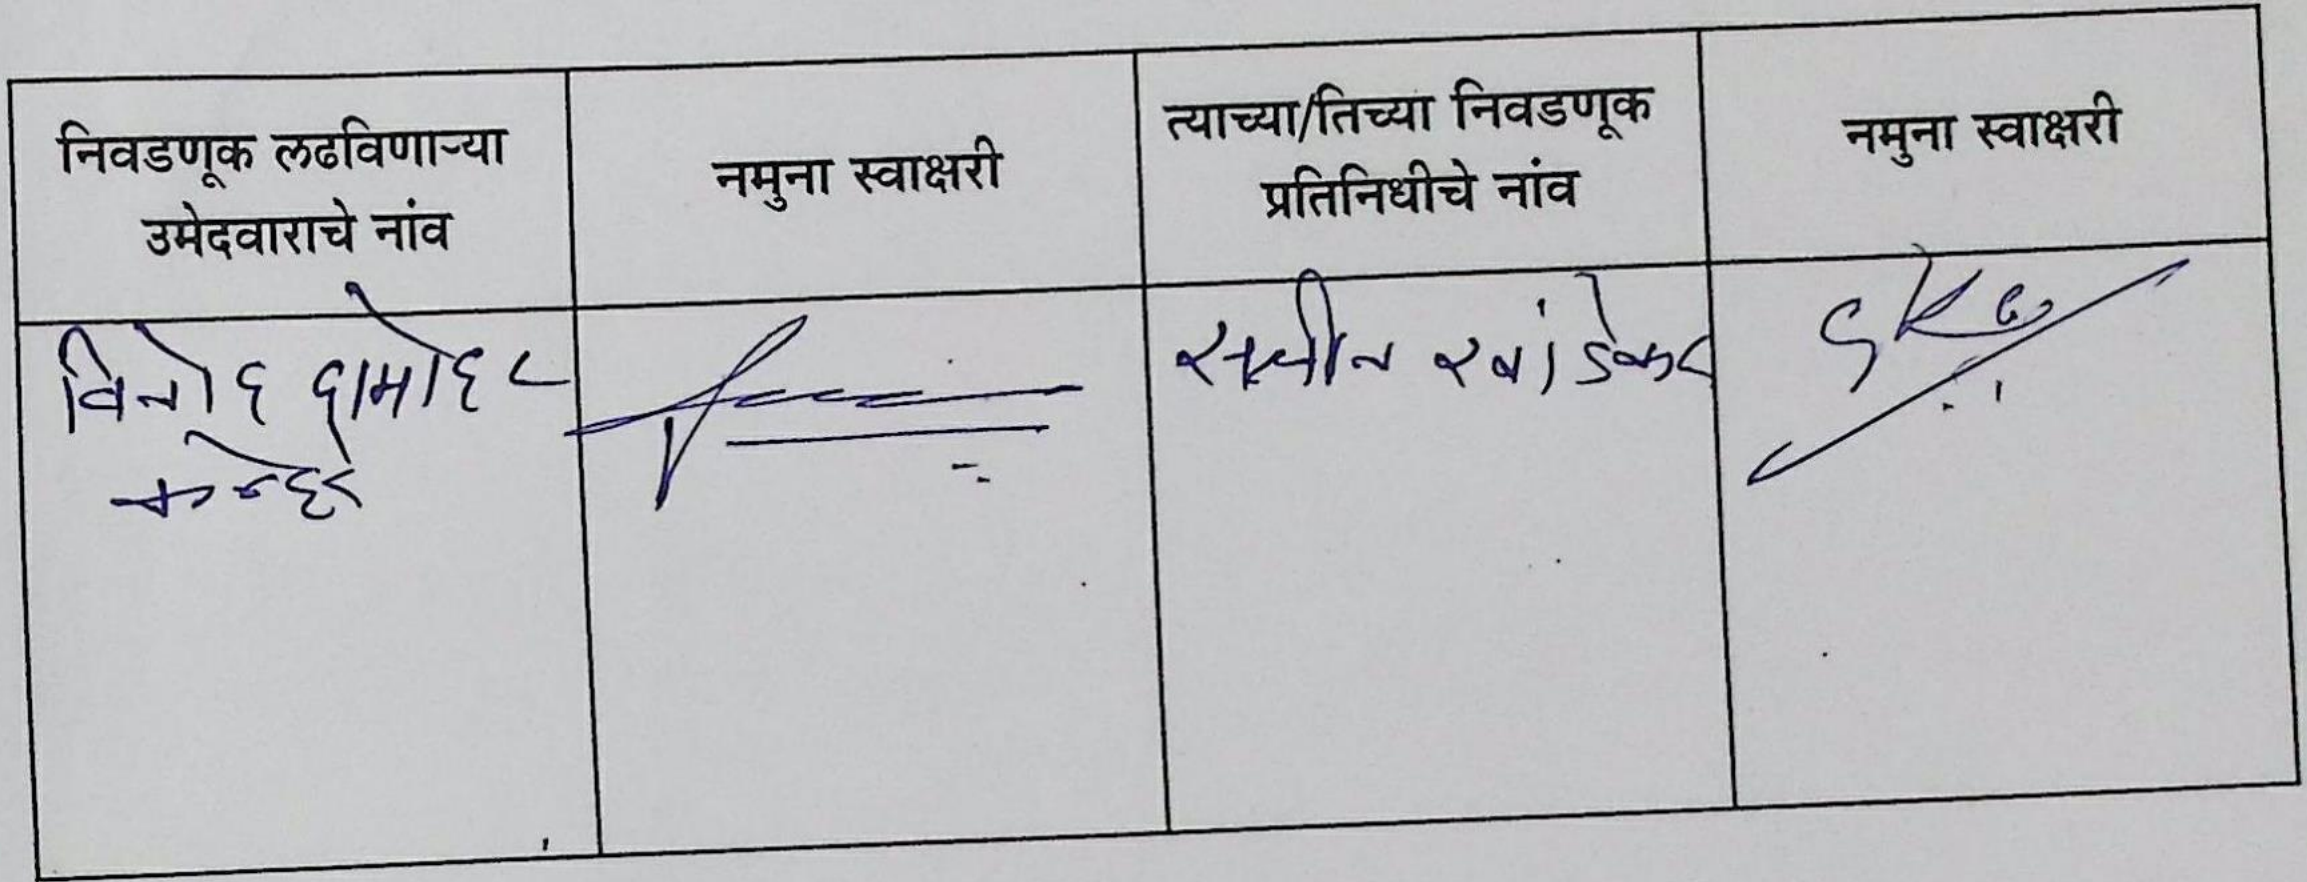 निवडणूक लढविणाऱ्या
उमेदवाराचे नांव
नमुना स्वाक्षरी
त्याच्या/तिच्या निवडणूक
प्रतिनिधीचे नांव
नमुना स्वाक्षरी
विनोद दामोदर
सचीन खांडेकर